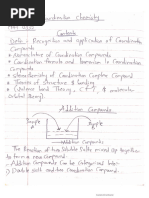 Coordination Chemistry
Contents
Unit-1 Recognition and application of Coordination
Compounds
* Nomenclature of Coordination Compounds
* Coordination formula and Isomerism in Coordination
Compounds
* Stereochemistry of Coordination Complex Compound
* Theories of Structure & bonding
* (Valence bond Theory, C.F.T, & molecular
orbital theory).
Addition Compounds
Addition Compounds
The Reaction of two Stable Salts mixed up together
to form a new Compound.
Addition Compounds Can be Categorized into:-
① Double salt and the Coordination Compound.